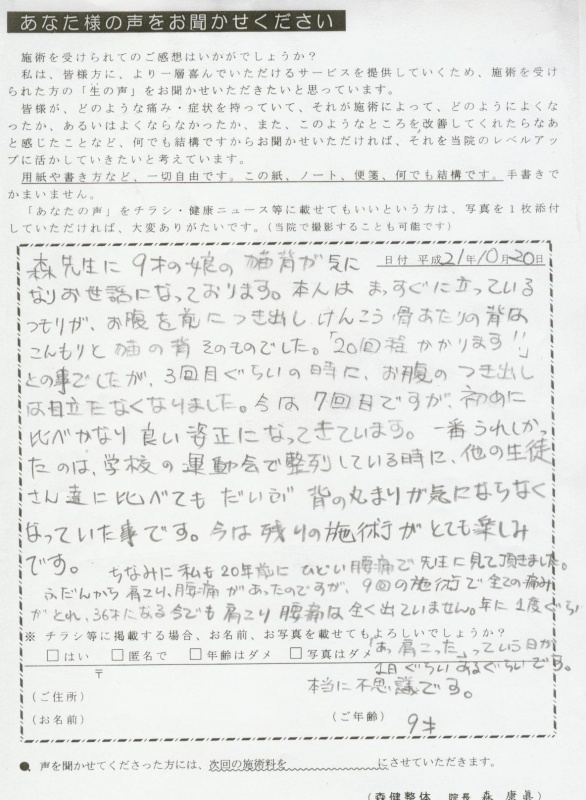 あなた様の声をお聞かせください
施術を受けられてのご感想はいかがでしょうか？
私は、皆様方に、より一層喜んでいただけるサービスを提供していくため、施術を受け
られた方の「生の声」をお聞かせいただきたいと思っています。
皆様が、どのような痛み・症状を持っていて、それが施術によって、どのようによくな
ったか、あるいはよくならなかったか、また、このようなところを改善してくれたらなあ
と感じたことなど、何でも結構ですからお聞かせいただければ、それを当院のレベルアッ
プに活かしていきたいと考えています。
用紙や書き方など、一切自由です。この紙、ノート、便箋、何でも結構です。手書きで
かまいません。
「あなたの声」をチラシ・健康ニュース等に載せてもいいという方は、写真を１枚添付
していただければ、大変ありがたいです。（当院で撮影することも可能です）
日付 平成21年10月20日
森先生に 9才の娘の猫背が気に
なりお世話になっております。本人は まっすぐに立っている
つもりが、お腹を前につき出し けんこう骨あたりの背は
こんもりと猫の背そのものでした。「20回程かかります!!」
との事でしたが、3回目ぐらいの時に、お腹のつき出し
は目立たなくなりました。今は7回目ですが、初めに
比べかなり良い姿正になってきています。一番うれしかっ
たのは、学校の運動会で整列している時に、他の生徒
さん達に比べてもだいぶ背の丸まりが気にならなく
なっていた事です。今は残りの施術がとても楽しみ
です。ちなみに私も20年前にひどい腰痛で先生に見て頂きました。
ふだんから肩こり、腰痛があったのですが、9回の施術で全ての痛み
がとれ、36才になる今でも肩こり腰痛は全く出ていません。年に1度ぐらい
※ チラシ等に掲載する場合、お名前、お写真を載せてもよろしいでしょうか？
「あ、肩こった」っていう日が
□はい □匿名で □年齢はダメ □写真はダメ
1日ぐらいあるぐらいです。
〒
本当に不思議です。
（ご住所）
（お名前） （ご年齢） 9才
● 声を聞かせてくださった方には、次回の施術料を にさせていただきます。
（森健整体 院長 森 康眞）